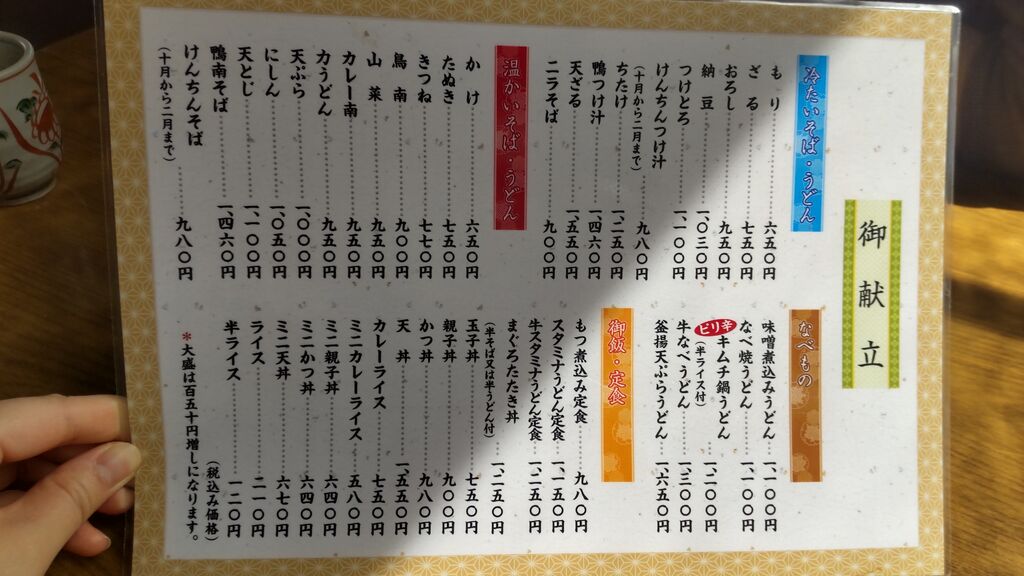 御献立
冷たいそば・うどん
もり 六五〇円
ざる 七五〇円
おろし 九五〇円
納豆 一、〇三〇円
つけとろ 一、一〇〇円
けんちんつけ汁
(十月から二月まで) 九八〇円
ちたけ 一、二五〇円
鴨つけ汁 一、四六〇円
天ざる 一、五五〇円
ニラそば 九〇〇円
温かいそば・うどん
かけ 六五〇円
たぬき 七五〇円
きつね 七七〇円
鳥南 九〇〇円
山菜 九五〇円
カレー南 九五〇円
力うどん 九五〇円
天ぷら 一、〇〇〇円
にしん 一、〇五〇円
天とじ 一、一〇〇円
鴨南そば 一、四六〇円
けんちんそば 九八〇円
(十月から二月まで)
なべもの
味噌煮込みうどん 一、一〇〇円
なべ焼うどん 一、一〇〇円
ピリ辛キムチ鍋うどん 一、二〇〇円
(半ライス付)
牛なべうどん 一、三〇〇円
釜揚天ぷらうどん 一、六五〇円
御飯・定食
もつ煮込み定食 九八〇円
スタミナうどん定食 一、一五〇円
牛スタミナうどん定食 一、二五〇円
まぐろたたき丼 一、二五〇円
(半そば又は半うどん付)
玉子丼 七五〇円
親子丼 九〇〇円
かつ丼 九八〇円
天丼 一、五五〇円
カレーライス 七五〇円
ミニカレーライス 五八〇円
ミニ親子丼 六四〇円
ミニかつ丼 六四〇円
ミニ天丼 六七〇円
ライス 二一〇円
半ライス 一二〇円
(税込み価格)
*大盛は百五十円増しになります。